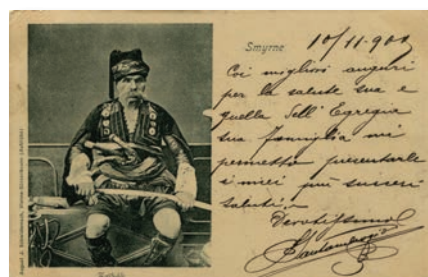 Smyrne
10/11-900
Coi migliori auguri
per la salute sua e
quella dell'Egregia
sua famiglia mi
permetto presentarle
i miei più sinceri
saluti
Devotissimo
Zeibek